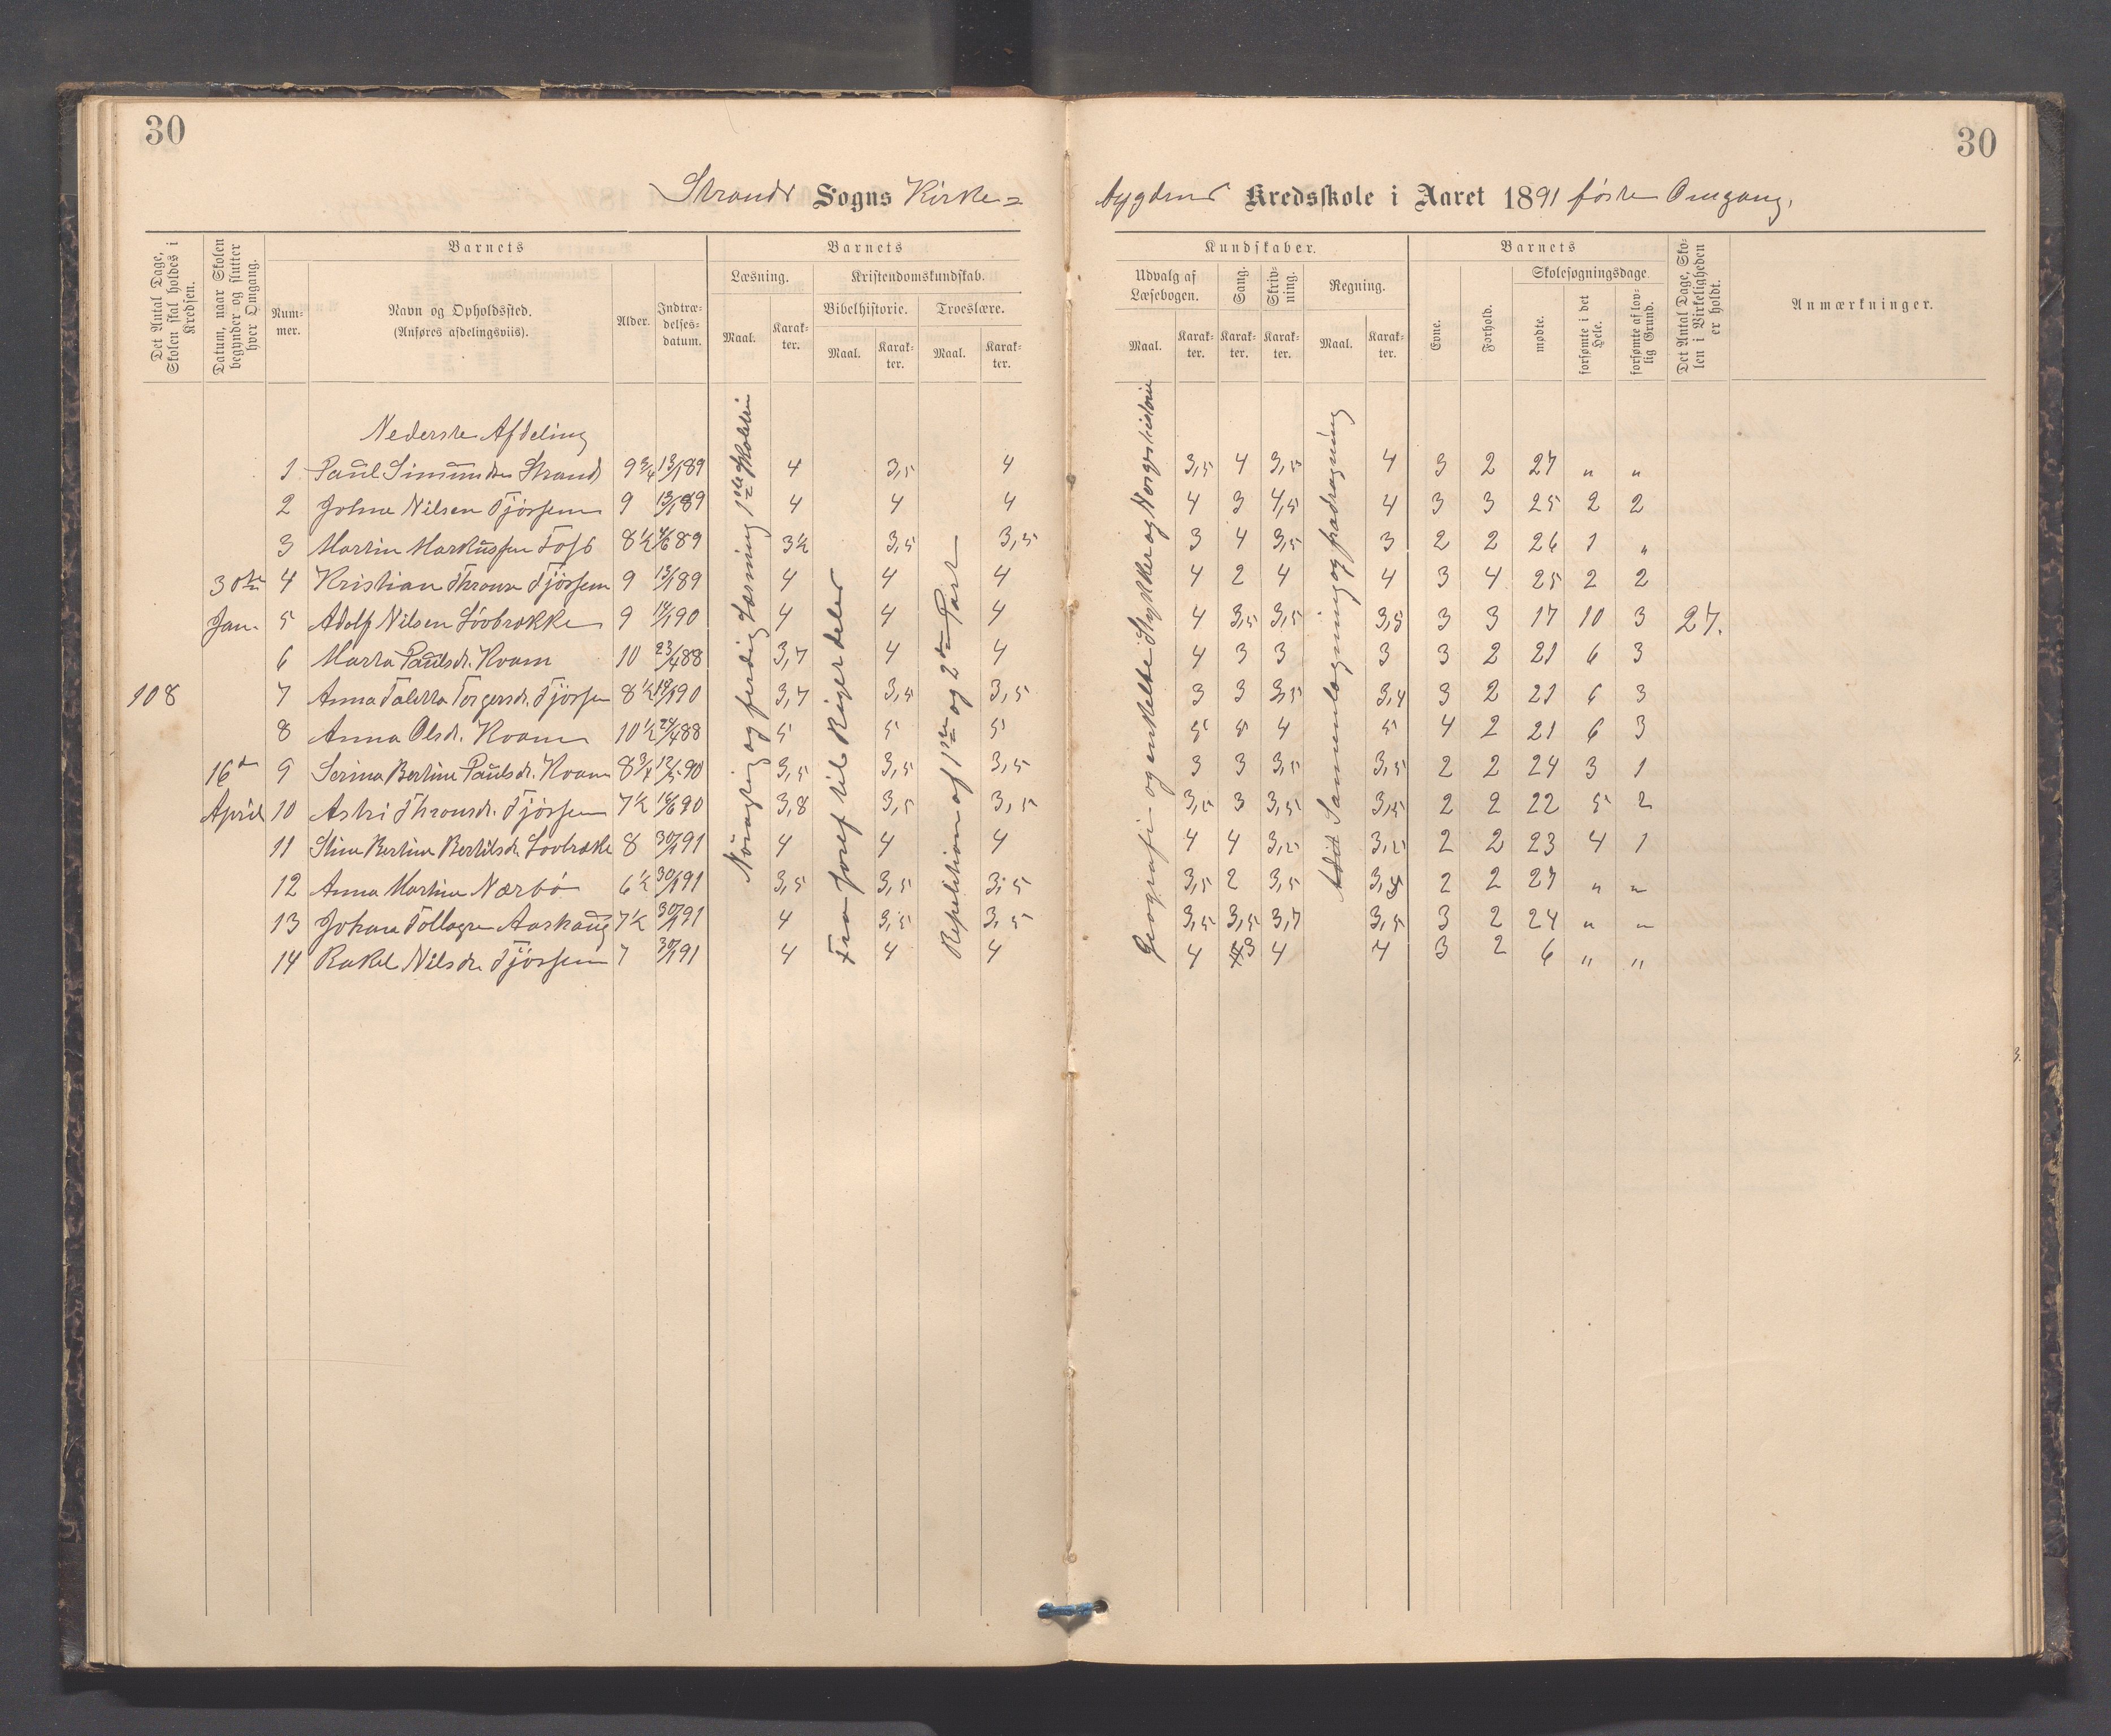 30
30
Strands Sogns Kirke=
bygdens Kredsskole i Aaret 1891 første Omgang.
Det Antal Dage, Skolen skal holdes i Kredsen.
Datum, naar Skolen begynder og slutter hver Omgang.
Barnets
Barnets
Kundskaber.
Barnets
Det Antal Dage, Skolen i Virkeligheden er holdt.
Anmærkninger.
Nummer.
Navn og Opholdssted.
(Anføres afdelingsviis).
Alder.
Indtrædelsesdatum.
Læsning.
Kristendomskundskab.
Udvalg af Læsebogen.
Sang.
Skrivning.
Regning.
Evne.
Forhold.
Skolesøgningsdage.
Bibelhistorie.
Troeslære.
mødte.
forsømte i det Hele.
forsømte af lovlig Grund.
Maal.
Karakter.
Maal.
Karakter.
Maal.
Karakter.
Maal.
Karakter.
Karakter.
Karakter.
Maal.
Karakter.
Nederste Afdeling
Nøiagtig og ferdig Læsning 1ste Skoletrin
Fra Josef til Rigets deler
Repetition af 1ste og 2den Part
Geografi- og enkelte Stykker og Norgeshistorie
Addit Sammenlægning og fradragning
1 Paul Simundsen Strand 9 3/4 13/1 89 4 3,5 4 3,5 4 3,5 4 3 2 27 " "
2 Johne Nilsen Tjøssem 9 13/1 89 4 4 4 4 3 4,5 4 3 3 25 2 2
3 Martin Markussen Toft 8 1/2 4/6 89 3 1/2 3,5 3,5 3 4 3,5 3 2 2 26 1 "
30te 4 Kristian Thronse Tjøssem 9 13/1 89 4 4 4 4 2 4 4 3 4 25 2 2
Jan. 5 Adolf Nilsen Løvbrække 9 14/1 90 4 4 4 4 3,5 3,5 3,5 3 3 17 10 3 27.
6 Marta Paulsdr. Kvam 10 23/4 88 3,7 4 4 4 3 3 3 3 2 21 6 3
108 7 Anna Taletta Torgersdr. Tjøssem 8 1/2 14/1 90 3,7 3,5 3,5 3 3 3,5 3,4 3 2 21 6 3
8 Anna Olsdr. Kvam 10 1/2 24/4 88 5 5 5 5 5 4 5 4 2 21 6 3
16d 9 Serina Bertine Paulsdr. Kvam 8 3/4 12/5 90 3,5 3,5 3,5 3 3 3,5 3,5 2 2 24 3 1
April 10 Astri Thronsdr. Tjøssem 7 1/2 16/6 90 3,8 3,5 3,5 3,5 3 3,5 3,5 2 2 22 5 2
11 Stine Bertine Bertilsdr. Lovbrække 8 30/1 91 4 4 4 4 4 3,5 3,5 2 2 23 4 1
12 Anna Martine Nærbø 6 1/2 30/1 91 3,5 3,5 3,5 3,5 2 3,5 3,5 2 2 27 " "
13 Johan Tollagsen Aaskaug 7 1/2 30/1 91 4 3,5 3,5 3,5 3,5 3,7 3,5 3 2 24 " "
14 Rakel Nilsdr. Tjøssem 7 30/1 91 4 4 4 4 3 4 4 3 2 6 " "
3.